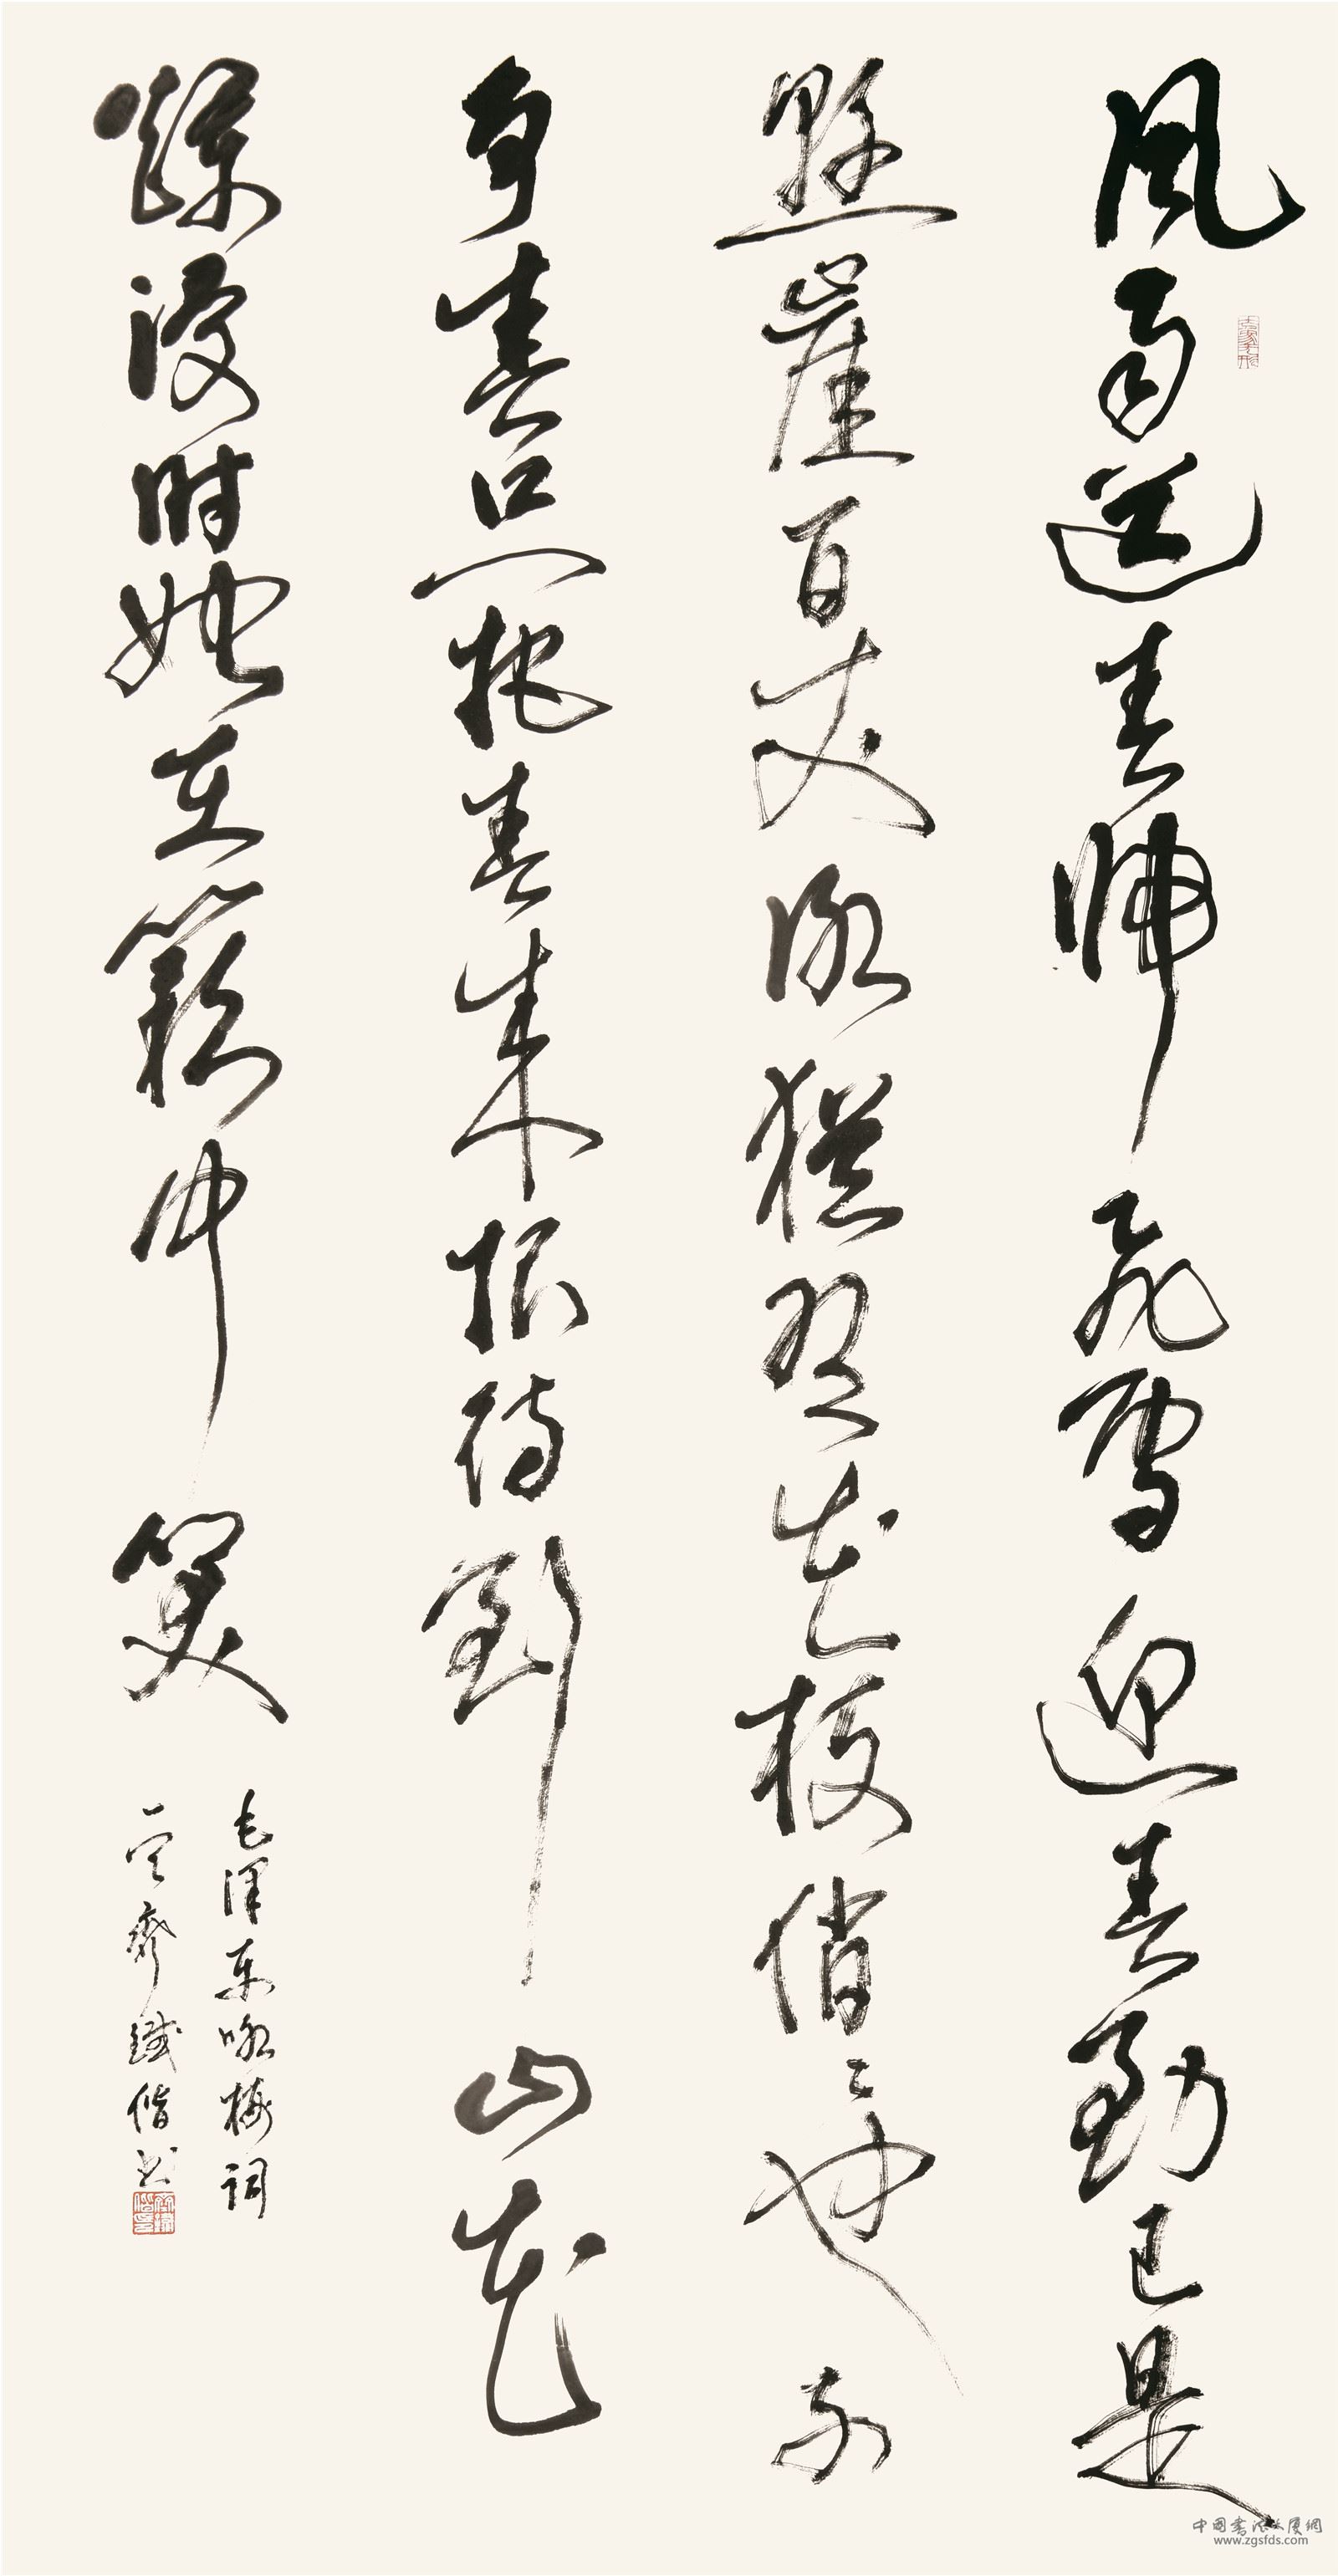 風雨送春歸飛雪迎春到已是
懸崖百丈冰猶有花枝俏々也不
爭春只把春來報待到山花
爛漫時她在叢中笑
毛澤東咏梅詞
一空齋鐵偕書
中国書法大廈網
www.zgsfds.com